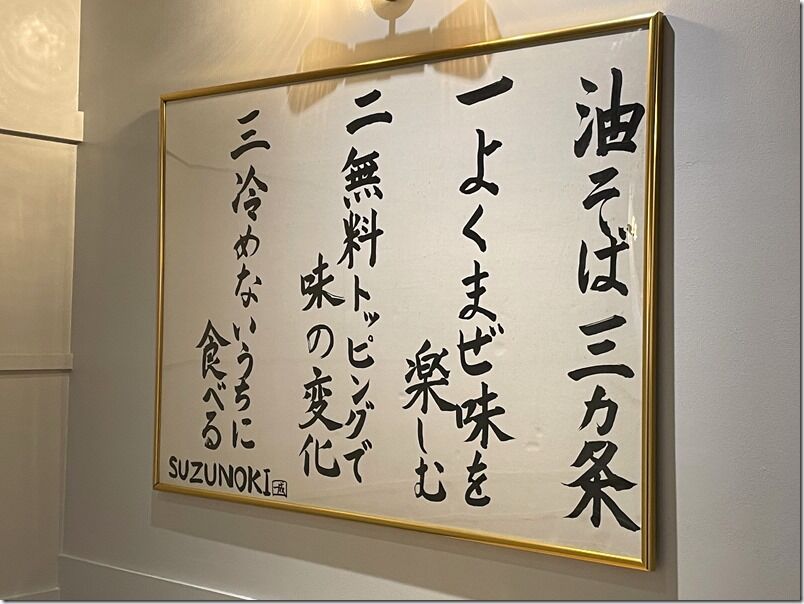 油そば三カ条
一よくまぜ味を
楽しむ
二無料トッピングで
味の変化
三冷めないうちに
食べる
SUZUNOKI